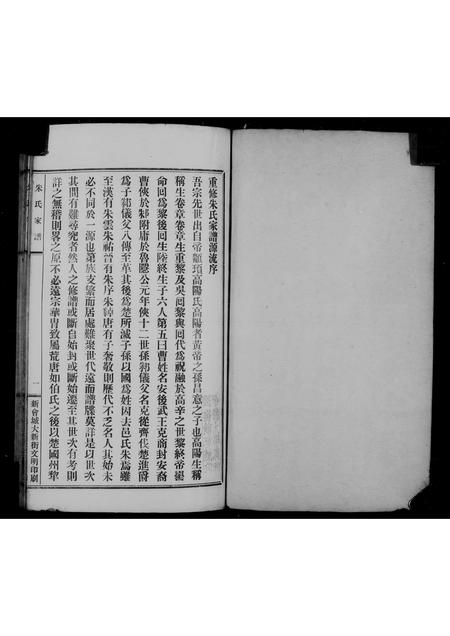 重修朱氏家譜源流序
吾宗先世出自帝顓頊高陽氏高陽者黃帝之孫昌意之子也高陽生稱
稱生卷章卷章生重黎及吳囘黎與囘代為祝融於高辛之世黎終帝嚳
命囘為黎後囘生陸終生子六人第五曰曹姓名安後武王克商封安裔
曹俠於邾附庸於魯隱公元年俠十二世孫邾儀父名克從齊伐楚進爵
為子邾儀父八傳至革其後為楚所滅子孫以國為姓因去邑氏朱焉雖
至漢有朱雲朱祐晉有朱序朱綽唐有子奢敬則歷代不乏名人其始未
必不同於一源也第族支繁而居處難聚世代遠而譜牒莫詳是以世次
其間有難尋究者然人之修譜或斷自始封或斷始遷至其世次有考則
詳之無稽則畧之原不必遠宗華冑致屬荒唐如伯氏之後以楚國州犂
朱氏家譜
一
新會城大新街文明印刷